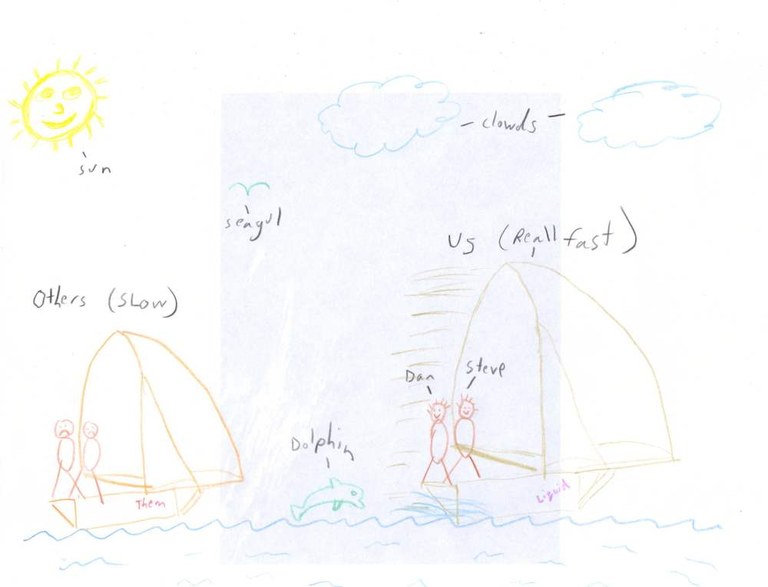 - clowds -
sun
seagul
Us (Reall fast)
Others (SLow)
Dan
Steve
Dolphin
Them
Liquid